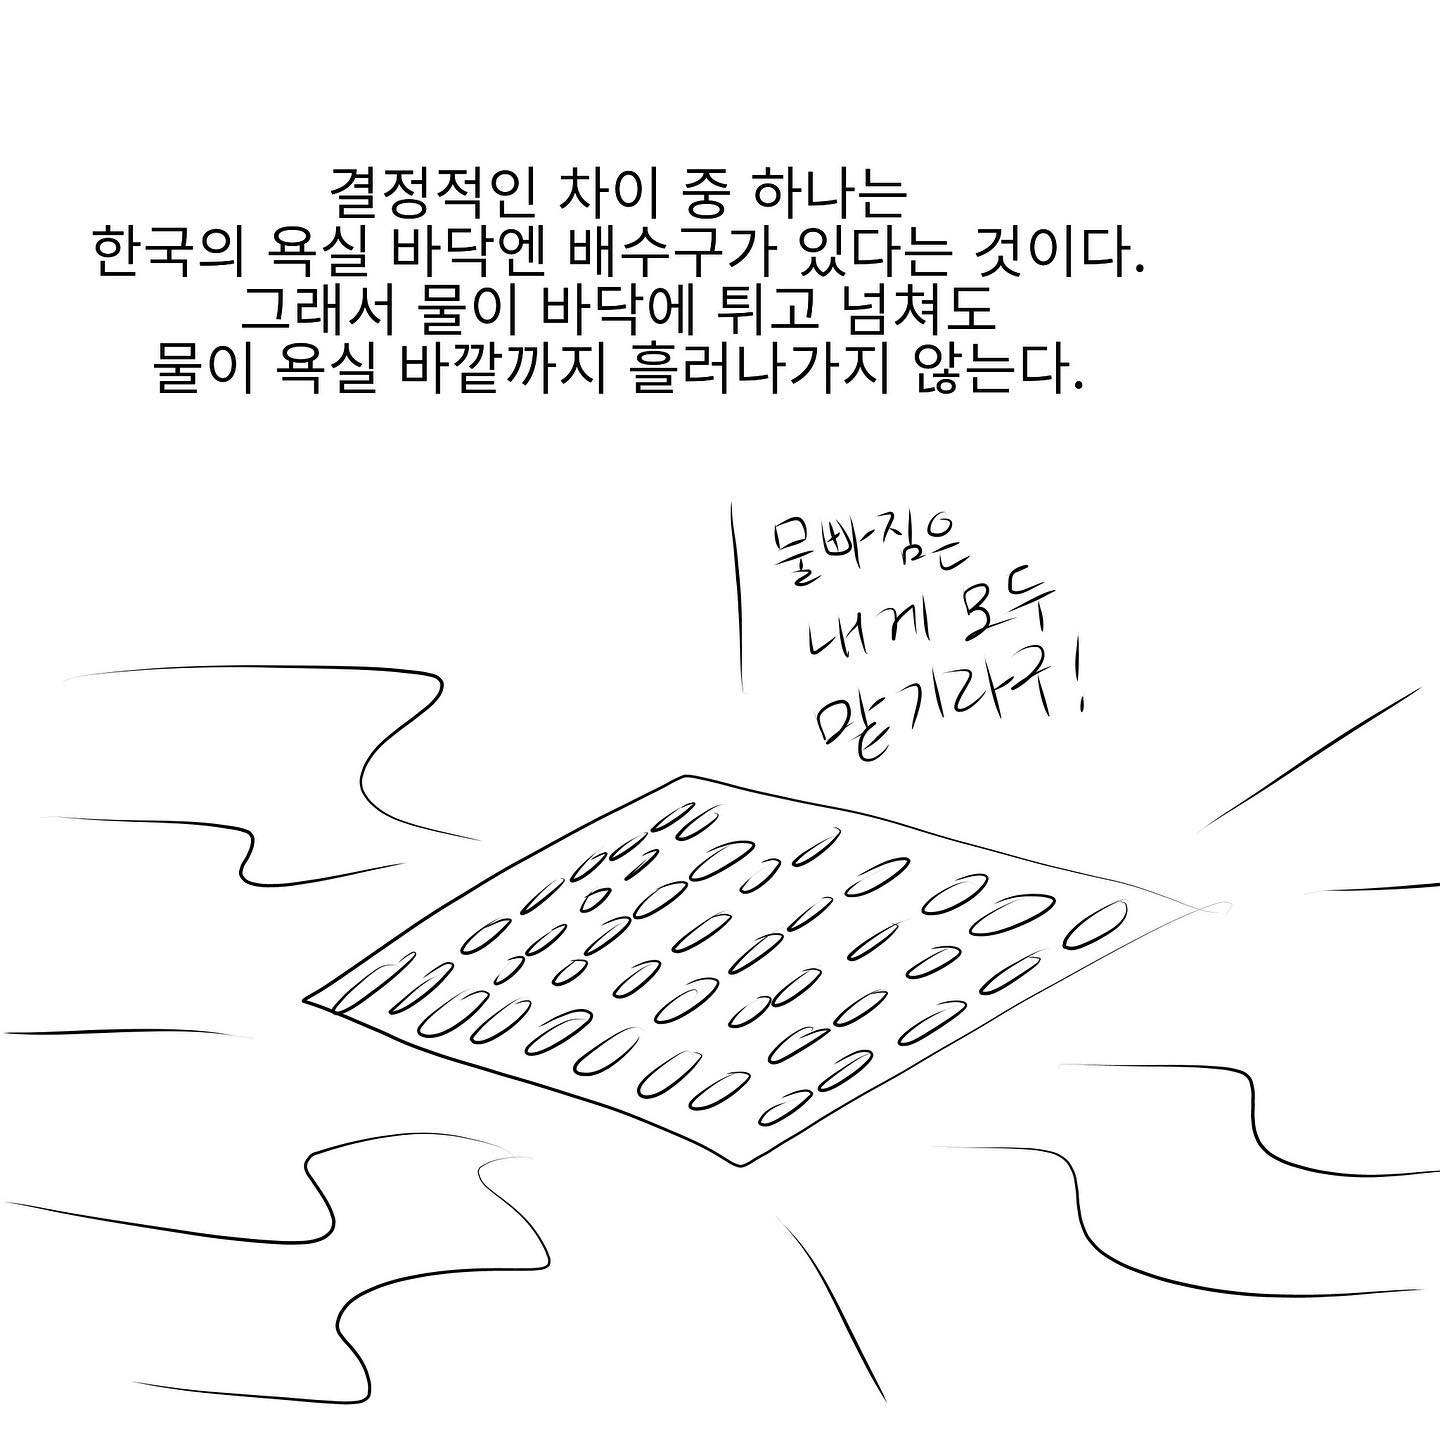 결정적인 차이 중 하나는
한국의 욕실 바닥엔 배수구가 있다는 것이다.
그래서 물이 바닥에 튀고 넘쳐도
물이 욕실 바깥까지 흘러나가지 않는다.
물빠짐은
내게 모두
맡기라구!